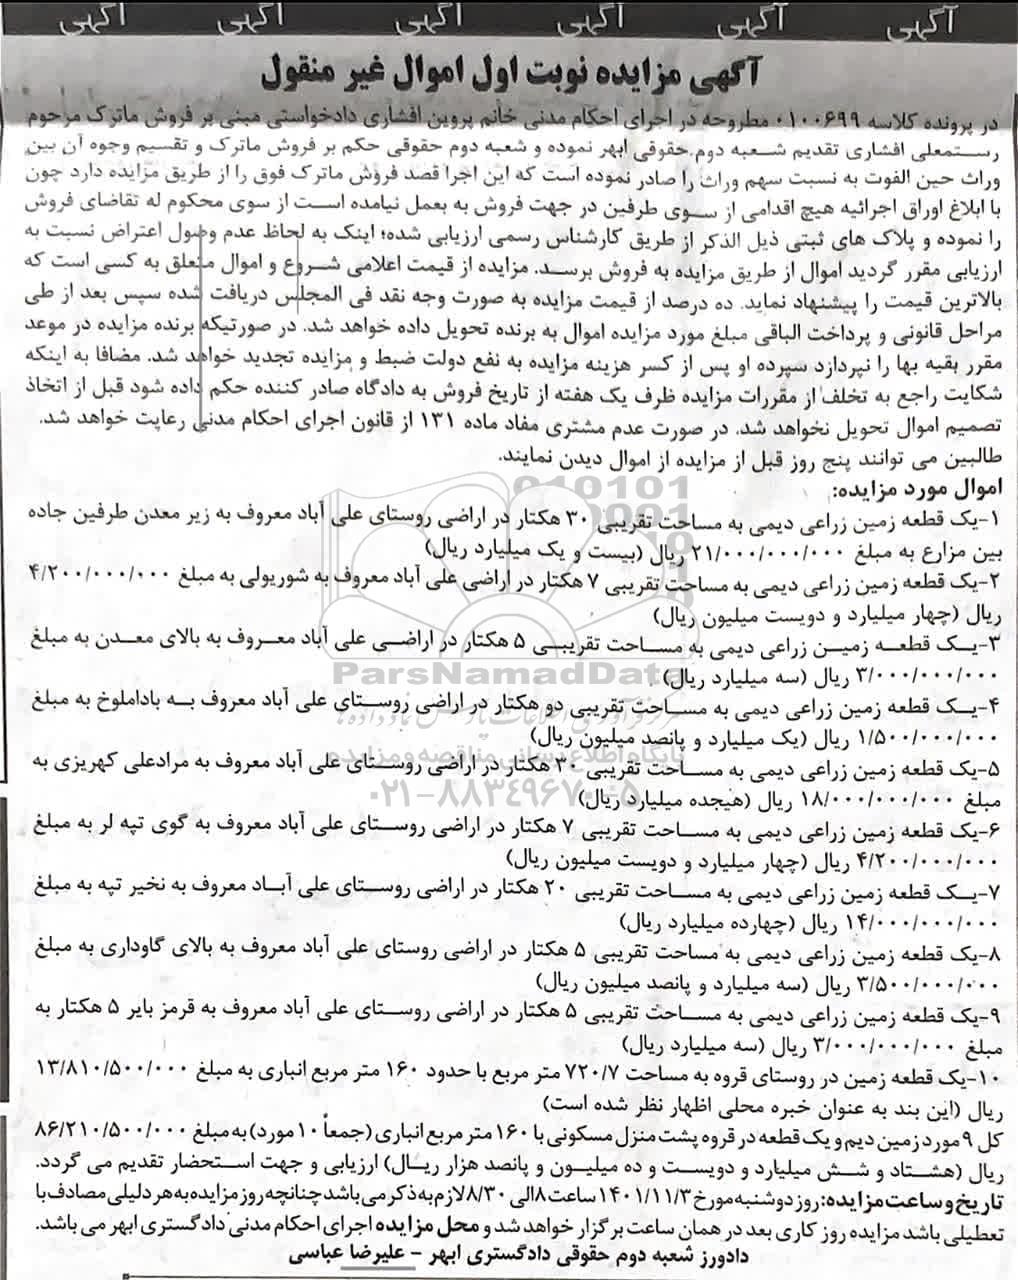 آگهی آگهی آگهی آگهی آگهی آگهی
آگهی مزایده نوبت اول اموال غیر منقول
در پرونده کلاسه ۰۱۰۰۶۹۹ مطروحه در اجرای احکام مدنی خانم پروین افشاری دادخواستی مبنی بر فروش ماترک مرحوم
رستمعلی افشاری تقدیم شعبه دوم حقوقی ابهر نموده و شعبه دوم حقوقی حکم بر فروش ماترک و تقسیم وجوه آن بین
وراث حین الفوت به نسبت سهم وراث را صادر نموده است که این اجرا قصد فروش ماترک فوق را از طریق مزایده دارد چون
با ابلاغ اوراق اجرائیه هیچ اقدامی از سوی طرفین در جهت فروش به بعمل نیامده است از سوی محکوم له تقاضای فروش
را نموده و پلاک های ثبتی ذیل الذکر از طریق کارشناس رسمی ارزیابی شده؛ اینک به لحاظ عدم وصول اعتراض نسبت به
ارزیابی مقرر گردید اموال از طریق مزایده به فروش برسد. مزایده از قیمت اعلامی شروع و اموال متعلق به کسی است که
بالاترین قیمت را پیشنهاد نماید. ده درصد از قیمت مزایده به صورت وجه نقد فی المجلس دریافت شده سپس بعد از طی
مراحل قانونی و پرداخت الباقی مبلغ مورد مزایده اموال به برنده تحویل داده خواهد شد. در صورتیکه برنده مزایده در موعد
مقرر بقیه بها را نپردازد سپرده او پس از کسر هزینه مزایده به نفع دولت ضبط و مزایده تجدید خواهد شد. مضافا به اینکه
شکایت راجع به تخلف از مقررات مزایده ظرف یک هفته از تاریخ فروش به دادگاه صادر کننده حکم داده شود قبل از اتخاذ
تصمیم اموال تحویل نخواهد شد. در صورت عدم مشتری مفاد ماده ۱۳۱ از قانون اجرای احکام مدنی رعایت خواهد شد.
طالبین می توانند پنج روز قبل از مزایده از اموال دیدن نمایند.
اموال مورد مزایده:
۱-یک قطعه زمین زراعی دیمی به مساحت تقریبی ۳۰ هکتار در اراضی روستای علی آباد معروف به زیر معدن طرفین جاده
بین مزارع به مبلغ ۲۱/۰۰۰/۰۰۰/۰۰۰ ریال (بیست و یک میلیارد ریال)
۲-یک قطعه زمین زراعی دیمی به مساحت تقریبی ۷ هکتار در اراضی علی آباد معروف به شوریولی به مبلغ ۴/۲۰۰/۰۰۰/۰۰۰
ریال (چهار میلیارد و دویست میلیون ریال)
۳-یک قطعه زمین زراعی دیمی به مساحت تقریبی ۵ هکتار در اراضی علی آباد معروف به بالای معدن به مبلغ
۳/۰۰۰/۰۰۰/۰۰۰ ریال (سه میلیارد ریال)
ParsNamadData
۴-یک قطعه زمین زراعی دیمی به مساحت تقریبی دو هکتار در اراضی روستای علی آباد معروف به باداملوخ به مبلغ
۱/۵۰۰/۰۰۰/۰۰۰ ریال (یک میلیارد و پانصد میلیون ریال)
پایگاه اطلاع رسانی مناقصه و مزایده
۵-یک قطعه زمین زراعی دیمی به مساحت تقریبی ۳۰ هکتار در اراضی روستای علی آباد معروف به مرادعلی کهریزی به
مبلغ ۱۸/۰۰۰/۰۰۰/۰۰۰ ریال (هیجده میلیارد ریال)
۰۲۱-۸۸۳۴۹۶۷۰-۵
۶-یک قطعه زمین زراعی دیمی به مساحت تقریبی ۷ هکتار در اراضی روستای علی آباد معروف به گوی تپه لر به مبلغ
۴/۲۰۰/۰۰۰/۰۰۰ ریال (چهار میلیارد و دویست میلیون ریال)
۷-یک قطعه زمین زراعی دیمی به مساحت تقریبی ۲۰ هکتار در اراضی روستای علی آباد معروف به نخیر تپه به مبلغ
۱۴/۰۰۰/۰۰۰/۰۰۰ ریال (چهارده میلیارد ریال)
۸-یک قطعه زمین زراعی دیمی به مساحت تقریبی ۵ هکتار در اراضی روستای علی آباد معروف به بالای گاوداری به مبلغ
۳/۵۰۰/۰۰۰/۰۰۰ ریال (سه میلیارد و پانصد میلیون ریال)
۹-یک قطعه زمین زراعی دیمی به مساحت تقریبی ۵ هکتار در اراضی روستای علی آباد معروف به قرمز بایر ۵ هکتار به
مبلغ ۳/۰۰۰/۰۰۰/۰۰۰ ریال (سه میلیارد ریال)
۱۰-یک قطعه زمین در روستای قروه به مساحت ۷۲۰/۷ متر مربع با حدود ۱۶۰ متر مربع انباری به مبلغ ۱۳/۸۱۰/۵۰۰/۰۰۰
ریال (این بند به عنوان خبره محلی اظهار نظر شده است)
کل ۹ مورد زمین دیم و یک قطعه در قروه پشت منزل مسکونی با ۱۶۰ متر مربع انباری (جمعاً ۱۰ مورد) به مبلغ ۸۶/۲۱۰/۵۰۰/۰۰۰
ریال (هشتاد و شش میلیارد و دویست و ده میلیون و پانصد هزار ریال) ارزیابی و جهت استحضار تقدیم می گردد.
تاریخ و ساعت مزایده: روز دوشنبه مورخ ۱۴۰۱/۱۱/۳ ساعت ۸ الی ۸/۳۰ لازم به ذکر می باشد چنانچه روز مزایده به هر دلیلی مصادف با
تعطیلی باشد مزایده روز کاری بعد در همان ساعت برگزار خواهد شد و محل مزایده اجرای احکام مدنی دادگستری ابهر می باشد.
دادورز شعبه دوم حقوقی دادگستری ابهر - علیرضا عباسی